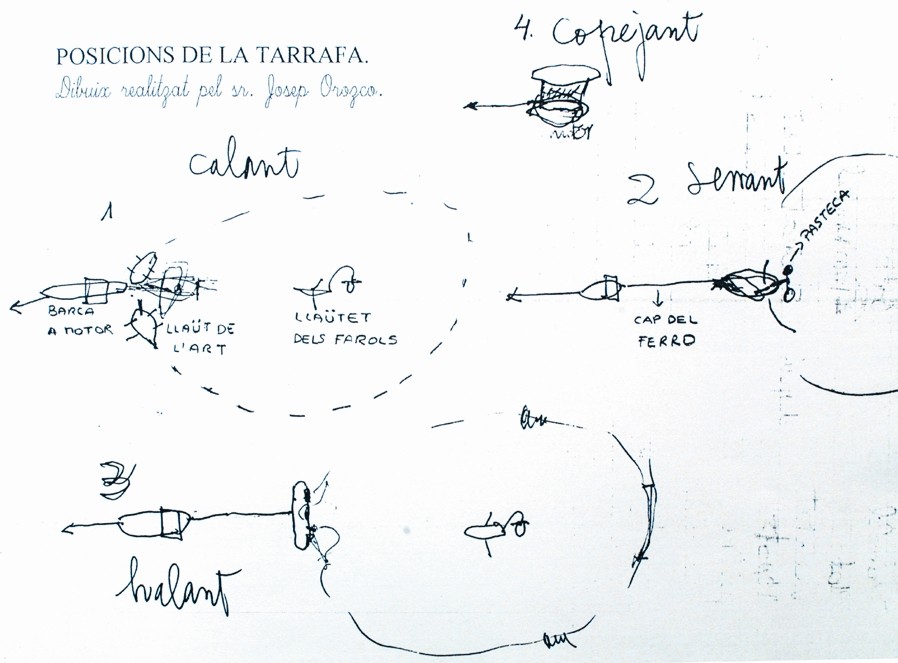 POSICIONS DE LA TARRAFA.
Dibuix realitzat pel sr. Josep Orozco.
4. Copejant
motor
calant
1
BARCA
A MOTOR
LLAÜT DE
L'ART
LLAÜTET
DELS FAROLS
2 Serrant
PASTECA
CAP DEL
FERRO
3
halant